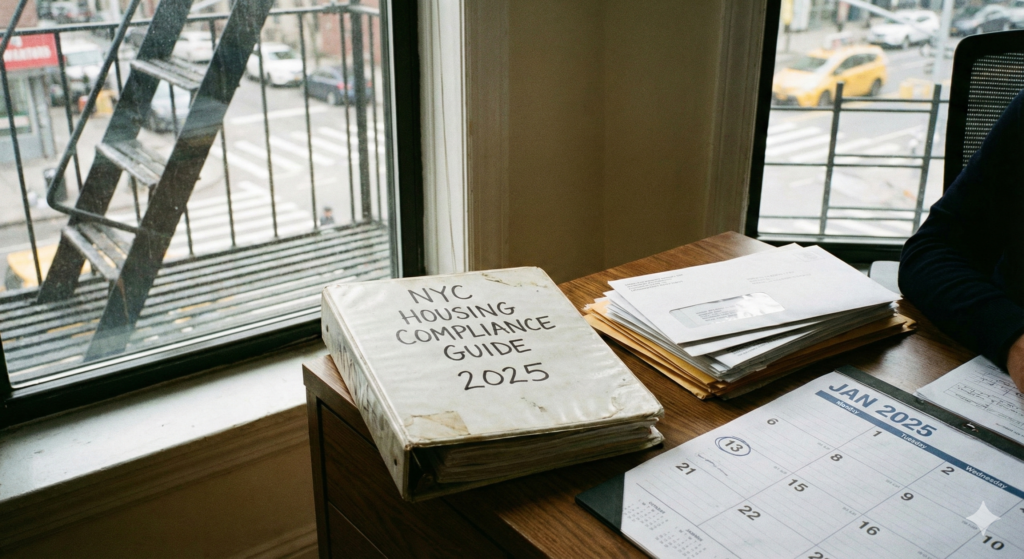 NYC
HOUSING
COMPLIANCE
GUIDE
2025
JAN 2025
Monday Tuesday Wednesday
6 1 2
13 8 9 10
21 15 16
22 20